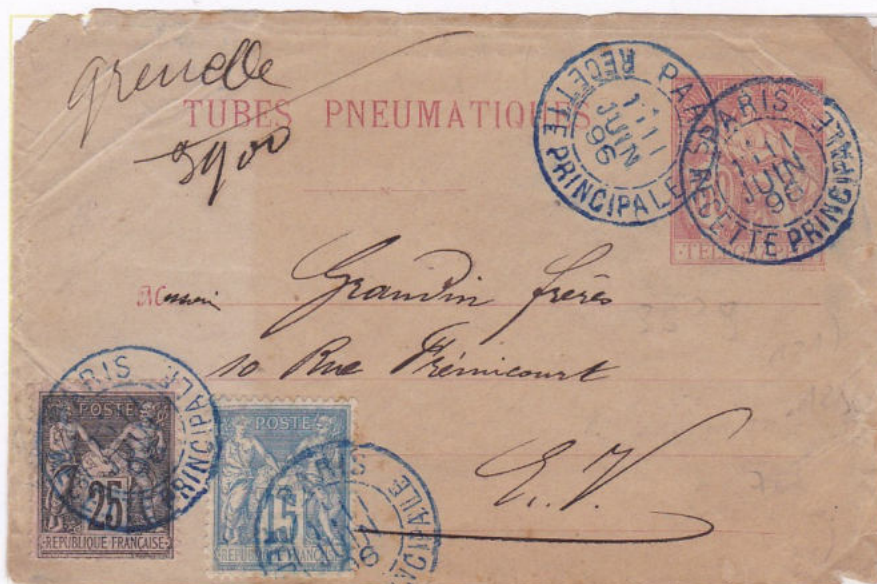 Grenelle
TUBES PNEUMATIQUES
PARIS
RECETTE PRINCIPALE
JUIN
96
PARIS
RECETTE PRINCIPALE
JUIN
96
TELEGRAPHE
Grandin frères
10 Rue Frémicourt
E.V.
PARIS
PRINCIPALE
POSTE
25
REPUBLIQUE FRANÇAISE
POSTE
15
PARIS
JUIN
96
PRINCIPALE